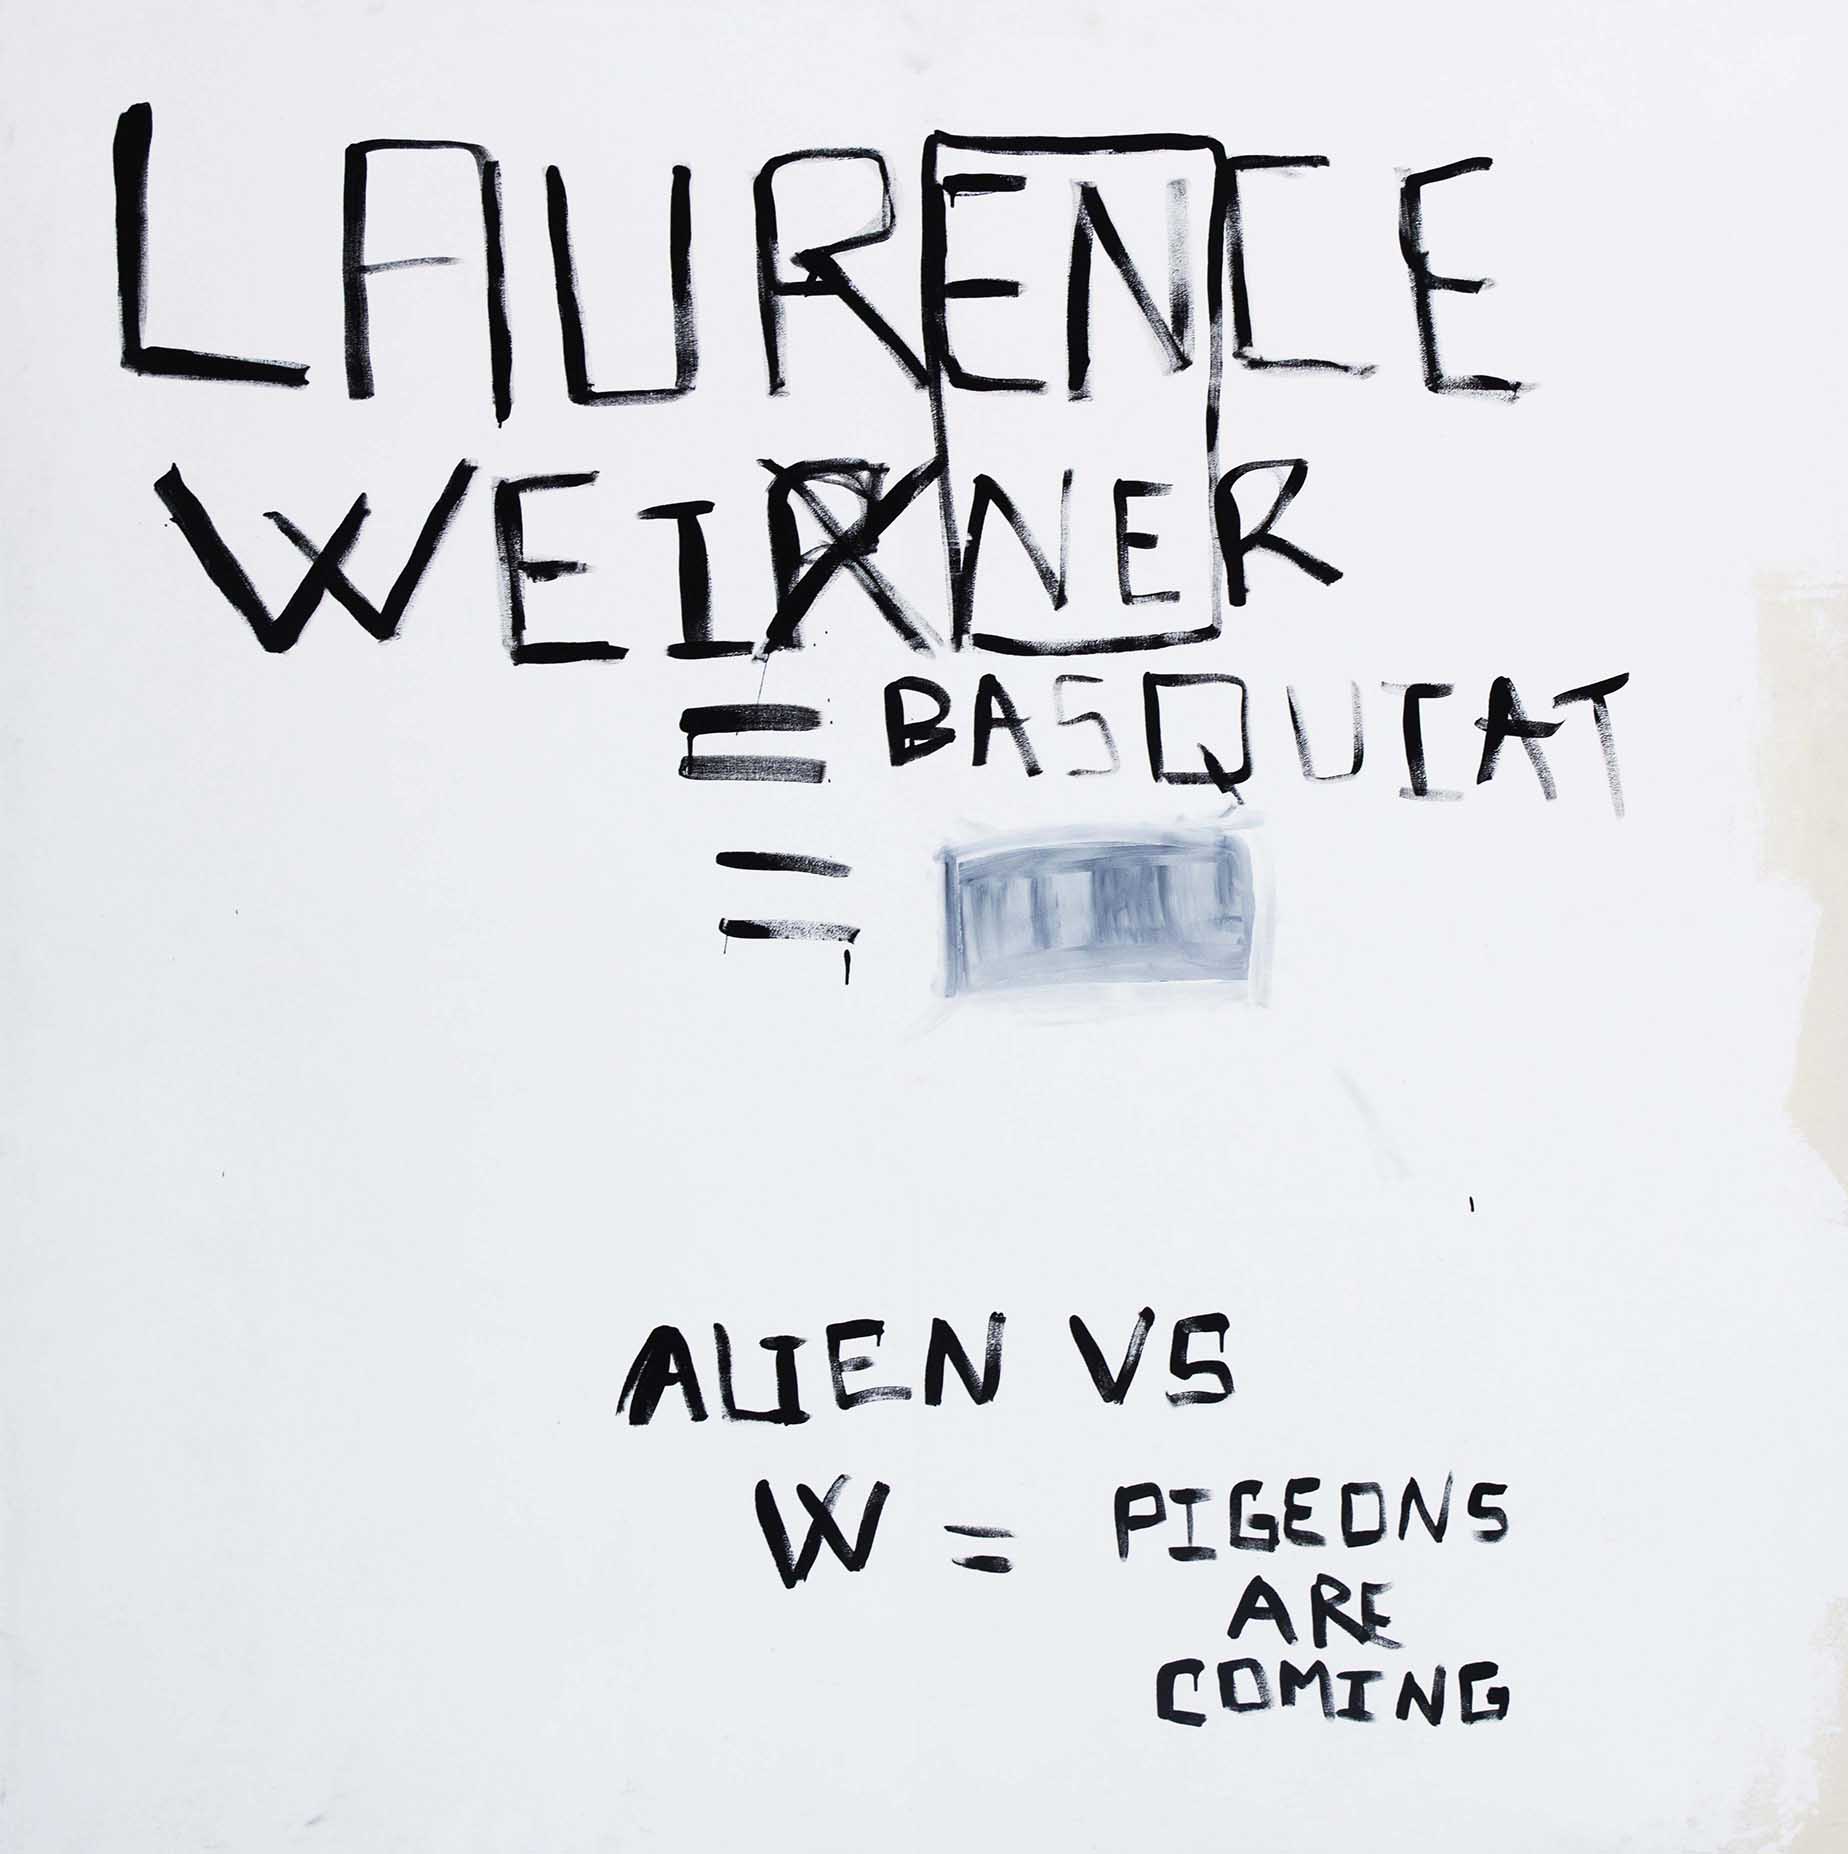 LAURENCE
WEINER
= BASQUIAT
=
ALIEN VS
W = PIGEONS
ARE
COMING